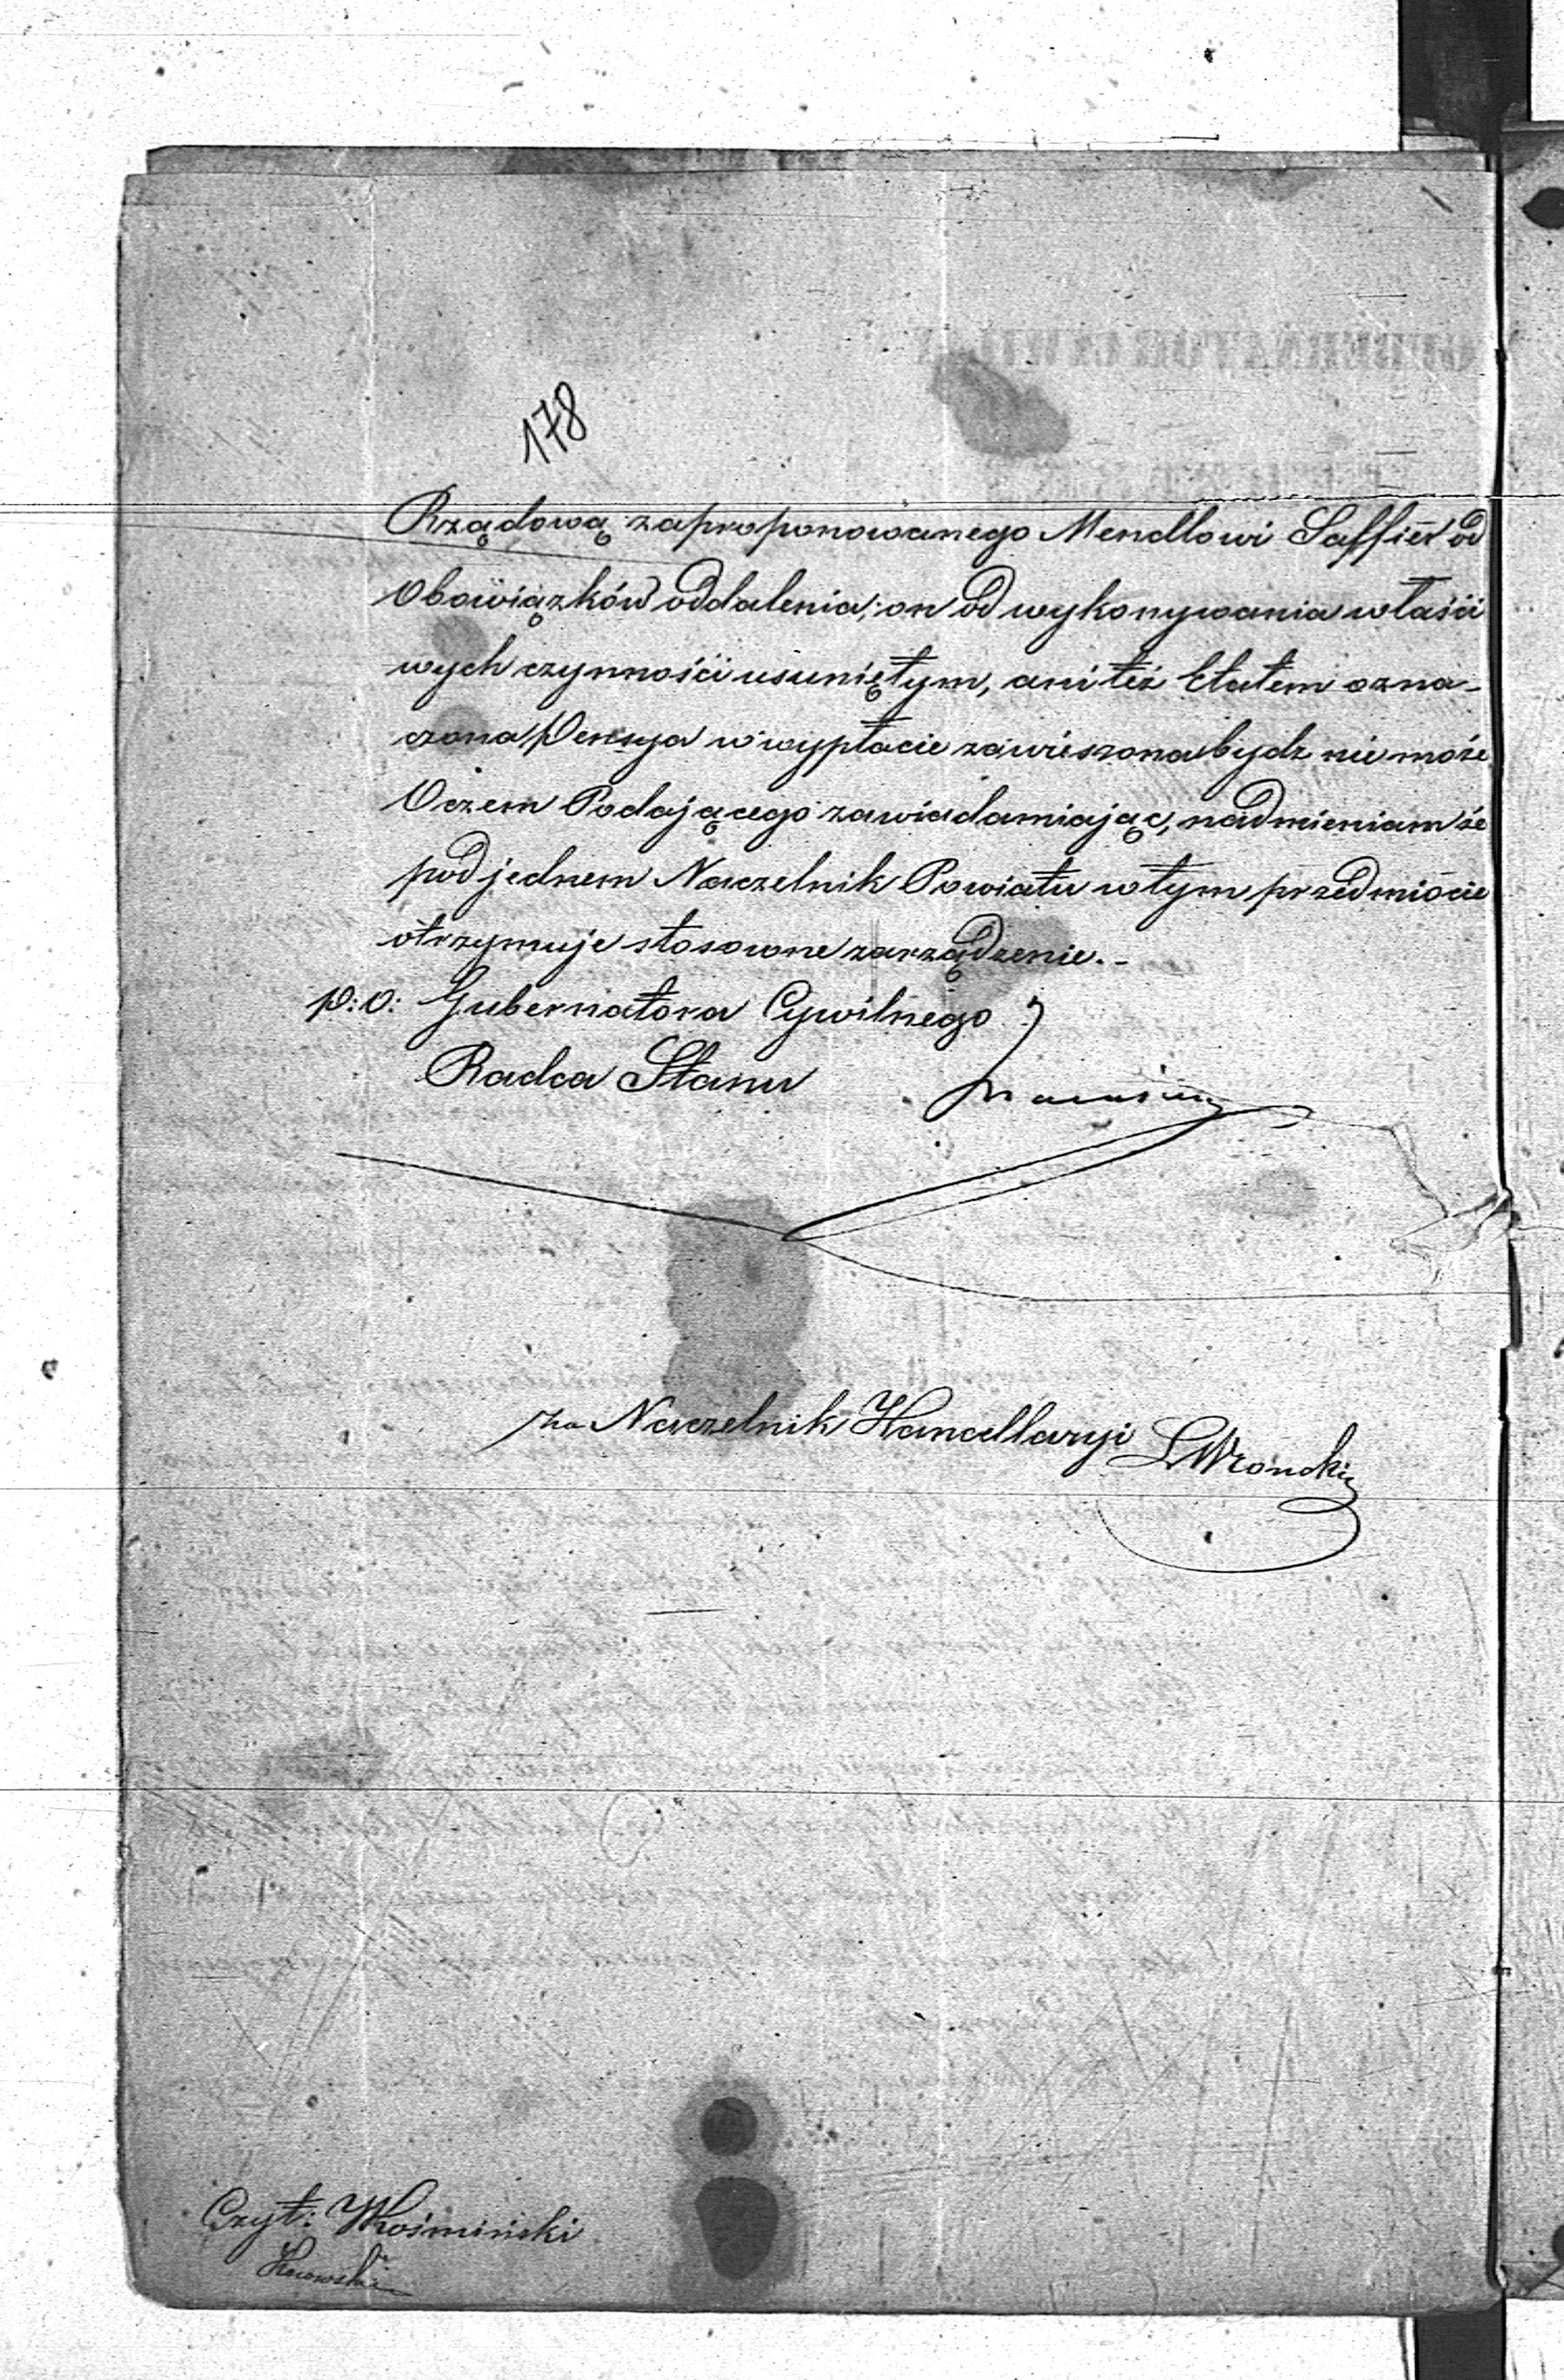 178
Rządową zaproponowanego Mendlowi Saffier od
Obowiązków oddalenia; on od wykonywania właści
wych czynności usuniętym, ani też Etatem ozna-
czona Pensya w wypłacie zawieszona bydz nie może
O czem Podającego zawiadamiając, nadmieniam że
pod jednem Naczelnik Powiatu w tym przedmiocie
otrzymuje stosowne zarządzenie.-
p:o: Gubernatora Cywilnego
Radca Stanu
za Naczelnik Kancellaryi LWronski
Czyt: Woźmiński